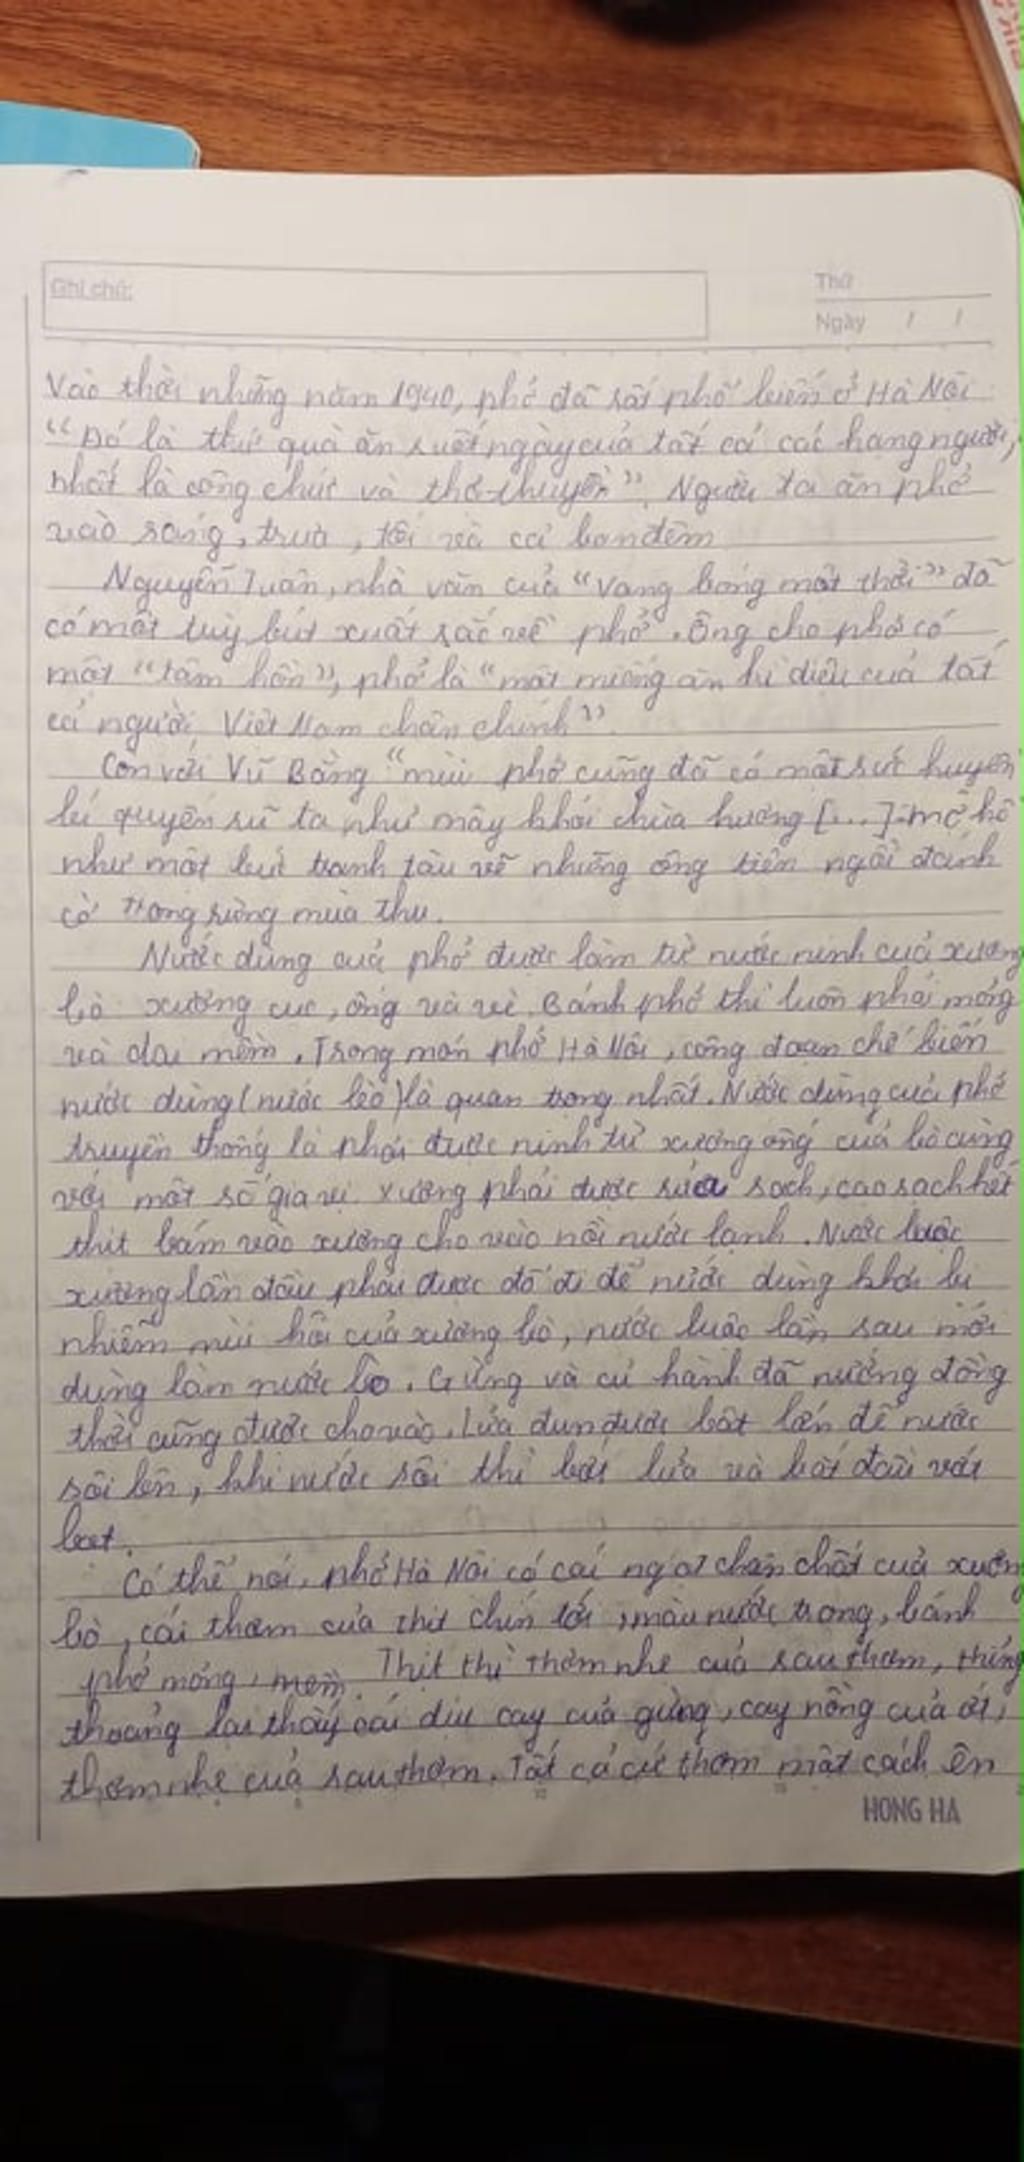 Ghi chú:
Thứ
Ngày / /
Vào thời những năm 1940, phở đã rất phổ biến ở Hà Nội
"Đó là thứ quà ăn suốt ngày của tất cả các hạng người,
nhất là công chức và thợ thuyền". Người ta ăn phở
vào sáng, trưa, tối và cả ban đêm
Nguyễn Tuân, nhà văn của "Vang bóng một thời" đã
có một tuỳ bút xuất sắc về phở. Ông cho phở có
một "tâm hồn", phở là "một miếng ăn kì diệu của tất
cả người Việt Nam chân chính".
Còn với Vũ Bằng "mùi phở cũng đã có một sức huyền
bí quyến rũ ta như mây khói chùa hương [...] mơ hồ
như một bức tranh tàu vẽ những ông tiên ngồi đánh
cờ trong rừng mùa thu.
Nước dùng của phở được làm từ nước ninh của xương
bò xương cục, ống và vè. Bánh phở thì luôn phải mỏng
và dai mềm. Trong món phở Hà Nội, công đoạn chế biến
nước dùng (nước lèo) là quan trọng nhất. Nước dùng của phở
truyền thống là phải được ninh từ xương ống của bò cùng
với một số gia vị. Xương phải được rửa sạch, cạo sạch hết
thịt bám vào xương cho vào nồi nước lạnh. Nước luộc
xương lần đầu phải được đổ đi để nước dùng khỏi bị
nhiễm mùi hôi của xương bò, nước luộc lần sau mới
dùng làm nước lèo. Gừng và củ hành đã nướng đồng
thời cũng được cho vào. Lửa đun được bật lớn để nước
sôi lên, khi nước sôi thì bớt lửa và bắt đầu vớt
bọt.
Có thể nói, phở Hà Nội có cái ngọt chân chất của xương
bò, cái thơm của thịt chín tới, màu nước trong, bánh
phở mỏng, mềm. Thịt thì thơm nhẹ của rau thơm, thỉnh
thoảng lại thấy cái dịu cay của gừng, cay nồng của ớt,
thơm nhẹ của rau thơm. Tất cả cứ thơm một cách êm
HONG HA